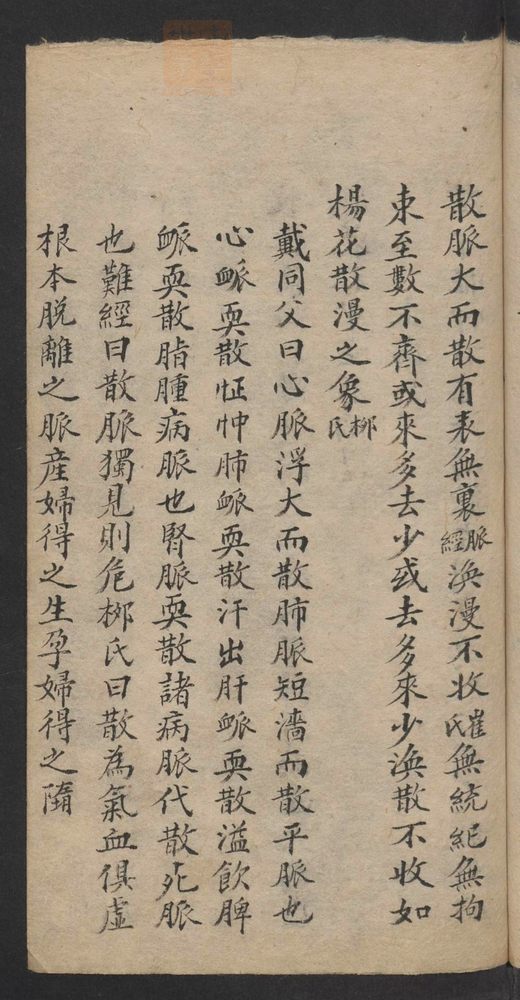 散脈大而散有表無裏脈經渙漫不收崔氏無統紀無拘
束至數不齊或來多去少或去多來少渙散不收如
楊花散漫之象柳氏
戴同父曰心脈浮大而散肺脈短濇而散平脈也
心衇耎散怔忡肺衇耎散汗出肝衇耎散溢飲脾
衇耎散脂腫病脈也腎脈耎散諸病脈代散死脈
也難經曰散脈獨見則危柳氏曰散為氣血俱虛
根本脫離之脈產婦得之生孕婦得之隋